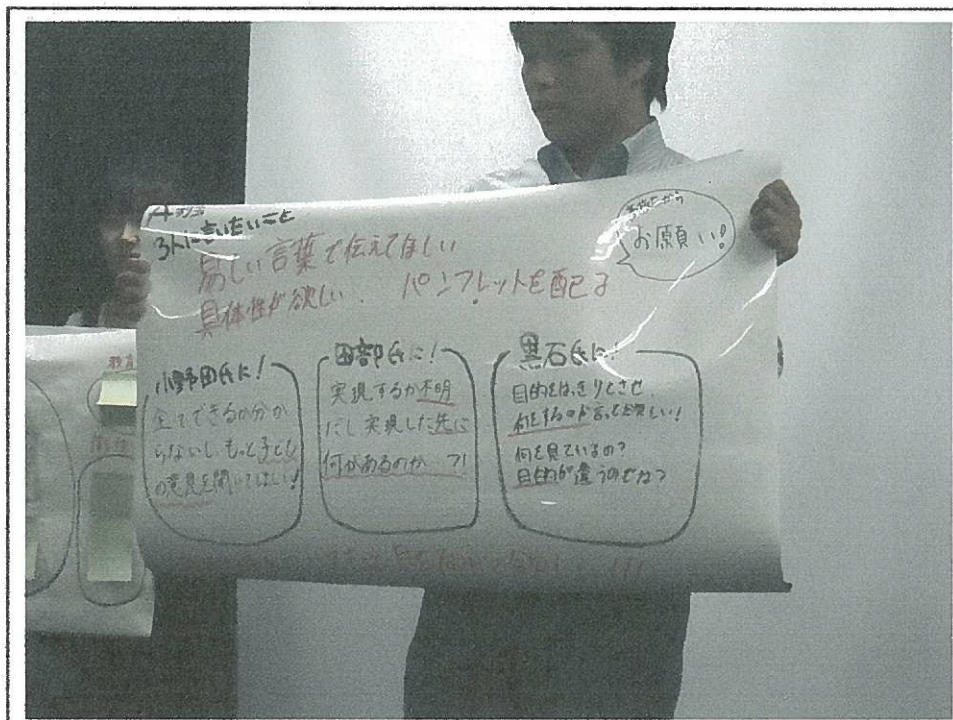 3人に言いたいこと
易しい言葉で伝えてほしい
具体性が欲しい. パンフレットを配る
お願い!
小野田氏に!
全てできるか分か
らないし、もっと子ども
の意見を聞いてほしい!
田部氏に!
実現するか不明
だし実現した先に
何があるのか…?!
黒石氏に!
目的をはっきりとさせ
何をするのか言って欲しい!
何を見ているの?
目的が違うのでは?